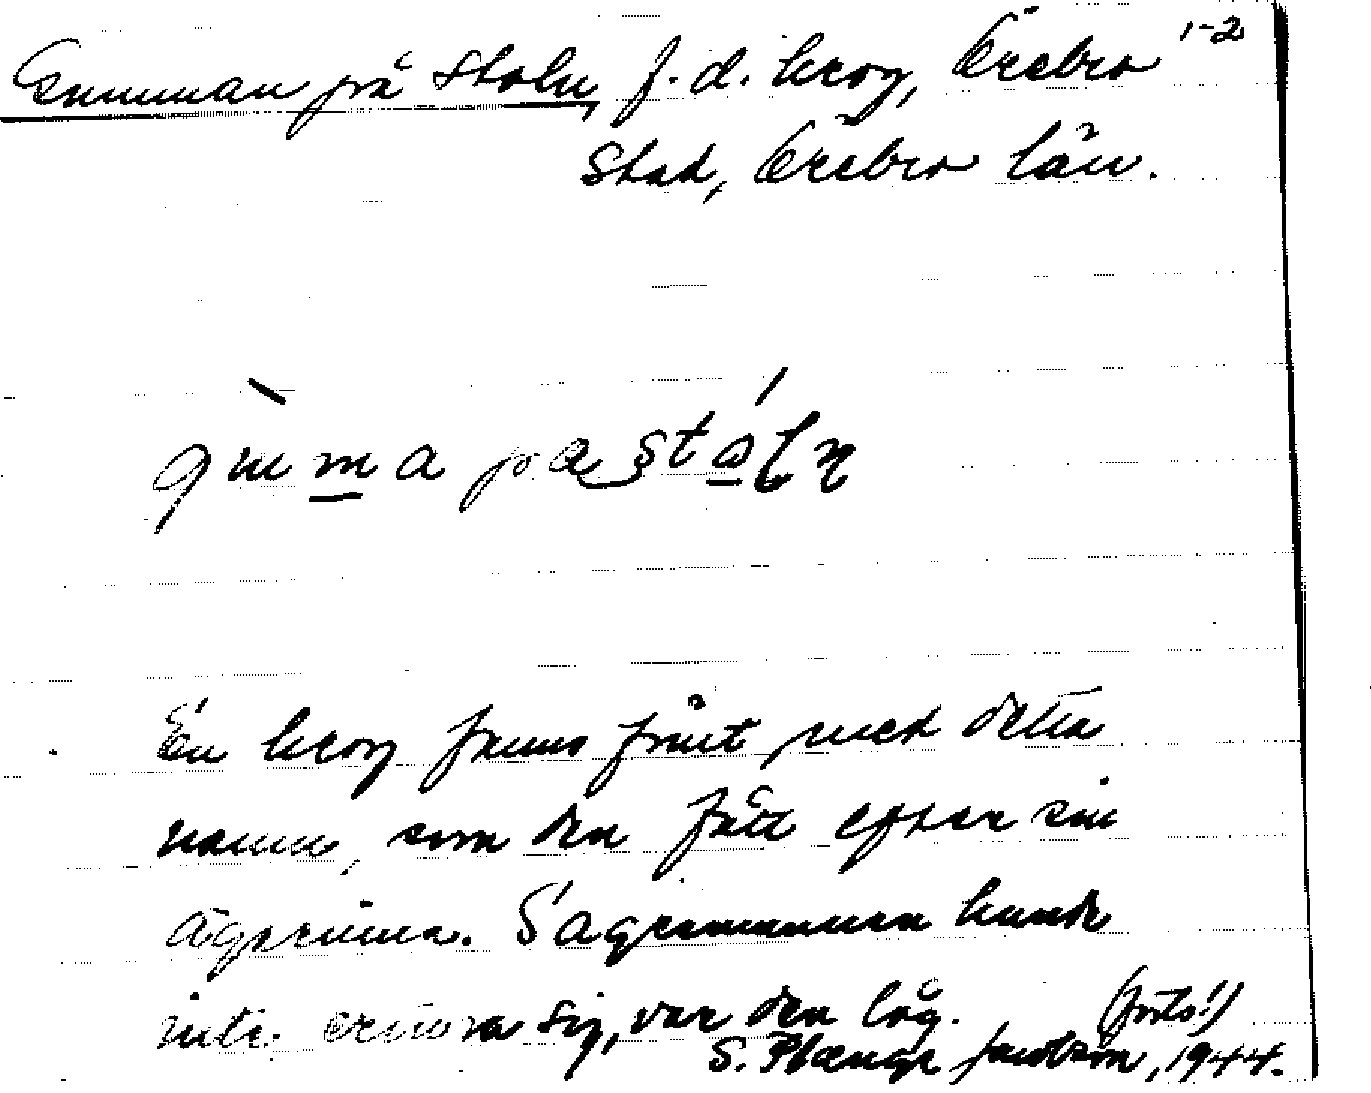 1-2
Gumman på Stoln, f. d. krog, Örebro
Stad, Örebro län.
En krog fanns förut med detta
namn, som den fått efter sin
ägarinna. Sagesmannen kunde
inte erinra sig, var den låg. (forts!)
S. Jacobson, 1944.